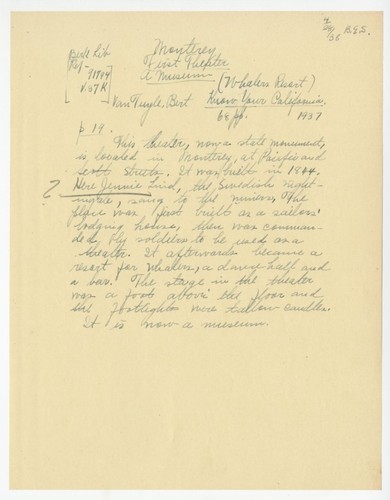 7
29
35 B.G.S.
Berk Lib Monterey
First Theater
& Museum (Whalers Resort)
f917.94
V37K
Van Tuyle, Bert Know Your California
68 pp. 1937
p 19.
This theater, now a state monument,
is located in Montrey, at Pacific and
Scott Streets. It was built in 1844.
? Here Jennie Lind, the Swedish night-
ingale, sang to the miners. The
place was first built as a sailors'
lodging house, then was comman-
ded by soldiers to be used as a
theatre. It afterwards became a
resort for whalers, a dance hall and
a bar. The stage in the theater
was a foot above the floor and
the footlights were tallow candles.
It is now a museum.